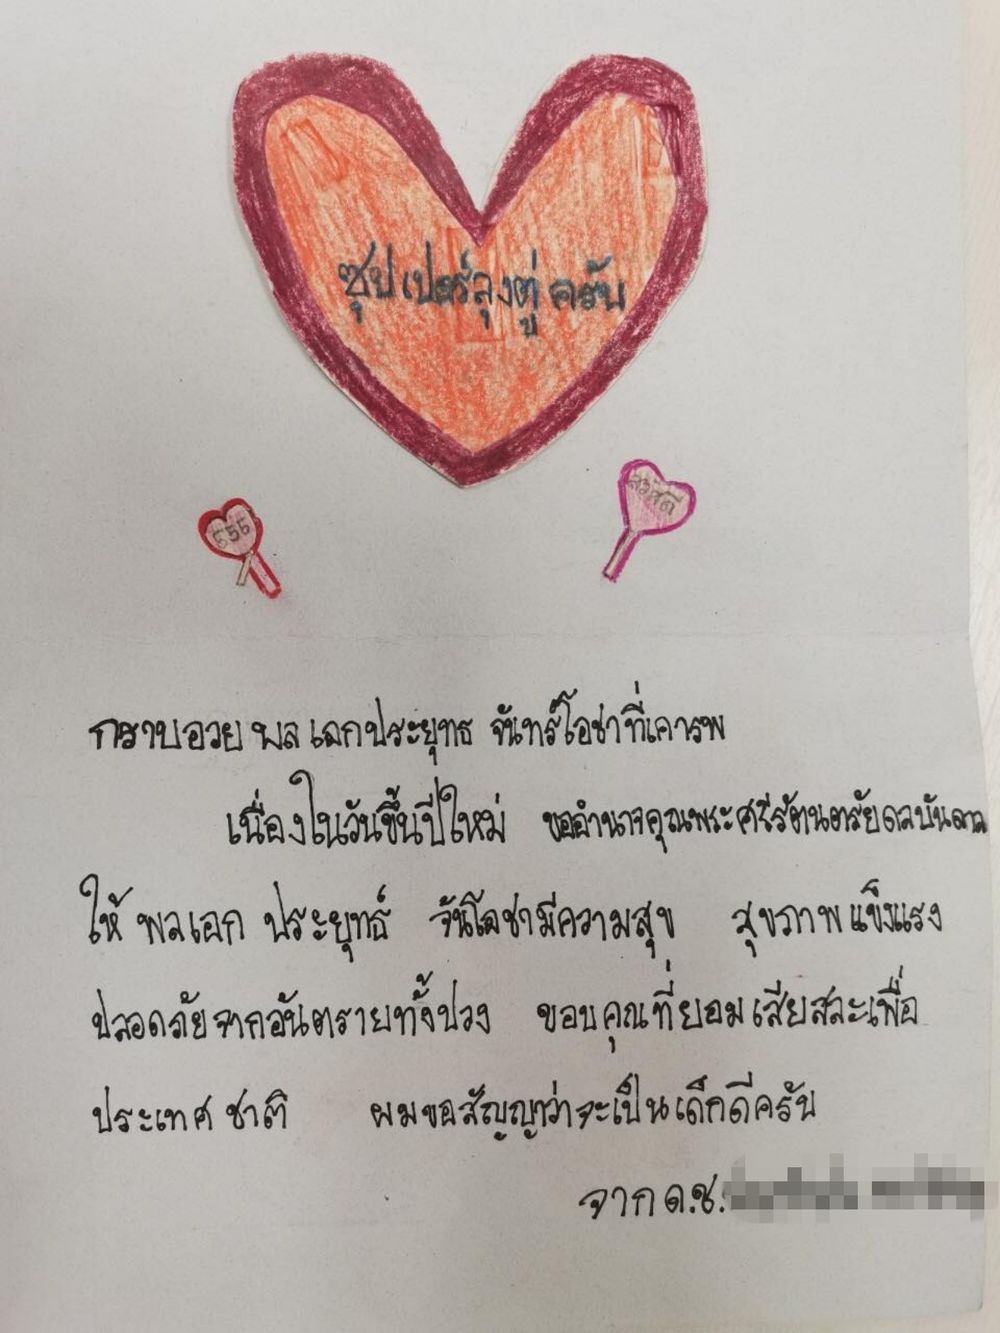 ซุปเปอร์ลุงตู่ครับ
555
สวัสดี
กราบอวย พลเอกประยุทธ จันทร์โอชาที่เคารพ
เนื่องในวันขึ้นปีใหม่ ขออำนาจคุณพระศรีรัตนตรัยดลบันดาล
ให้ พลเอก ประยุทธ์ จันโอชามีความสุข สุขภาพแข็งแรง
ปลอดภัยจากอันตรายทั้งปวง ขอบคุณที่ยอมเสียสละเพื่อ
ประเทศชาติ ผมขอสัญญาว่าจะเป็นเด็กดีครับ
จาก ด.ช.